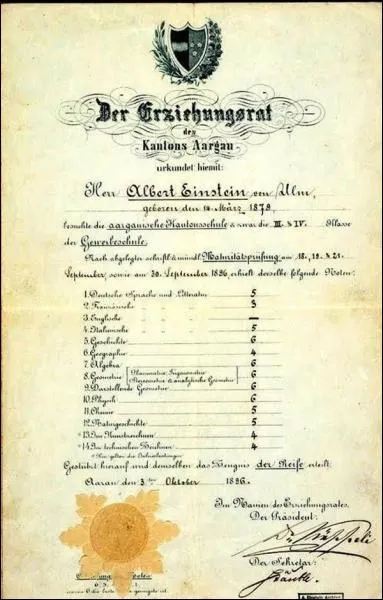 Der Erziehungsrat
des
Kantons Aargau
urkundet hiemit:
Herr Albert Einstein von Ulm,
geboren den 14. März 1879,
besuchte die aargauische Kantonsschule & zwar die III. & IV. Klasse
der Gewerbeschule.
Nach abgelegter schriftl. & mündl. Maturitätsprüfung am 18., 19. & 21.
September, sowie am 30. September 1896, erhielt derselbe folgende Noten:
1. Deutsche Sprache und Litteratur 5
2. Französische 3
3. Englische —
4. Italienische 5
5. Geschichte 6
6. Geographie 4
7. Algebra 6
8. Geometrie (Planimetrie, Trigonometrie 6
Stereometrie & analytische Geometrie)
9. Darstellende Geometrie 6
10. Physik 6
11. Chemie 5
12. Naturgeschichte 5
*13. Im Kunstzeichnen 4
*14. Im technischen Zeichnen 4
* Hier gelten die Jahresleistungen.
Gestützt hierauf wird demselben das Zeugnis der Reife erteilt.
Aarau den 3ten Oktober 1896.
Im Namen des Erziehungsrates,
Der Präsident:
Der Sekretär:
A. Einstein Archives